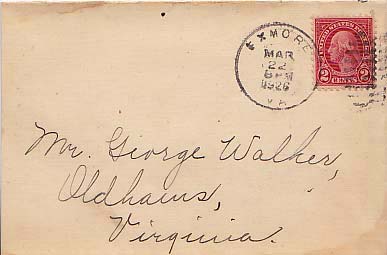 EXMORE
MAR
22
6 PM
1926
VA
UNITED STATES POSTAGE
2 CENTS 2
Mr. George Walker,
Oldhams,
Virginia.